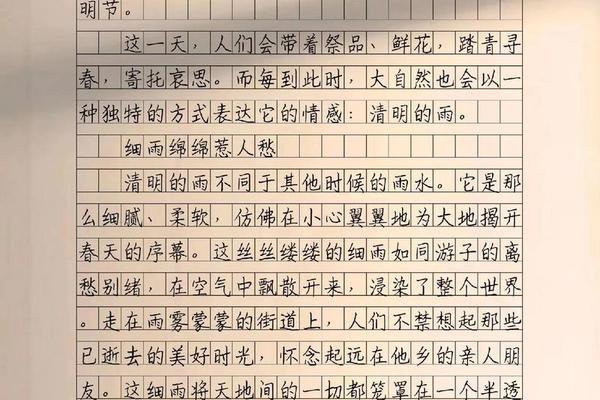 明节。
这一天，人们会带着祭品、鲜花，踏青寻
春，寄托哀思。而每到此时，大自然也会以一
种独特的方式表达它的情感：清明的雨。
细雨绵绵惹人愁
清明的雨不同于其他时候的雨水。它是那
么细腻、柔软，仿佛在小心翼翼地为大地揭开
春天的序幕。这丝丝缕缕的细雨如同游子的离
愁别绪，在空气中飘散开来，浸染了整个世界
。走在雨雾蒙蒙的街道上，人们不禁想起那些
已逝去的美好时光，怀念起远在他乡的亲人朋
友。这细雨将天地间的一切都笼罩在一个半透